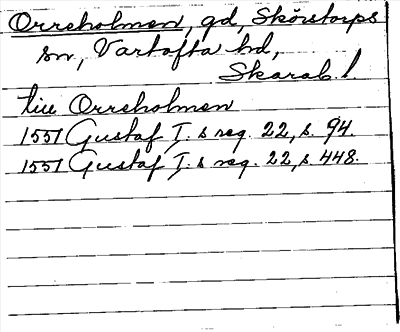 Orreholmen, gd, Skörstorps
sn, Vartofta hd,
Skarab. l.
till Orreholmen
1551 Gustaf I:s reg. 22, s. 94.
1551 Gustaf I:s reg. 22, s. 448.